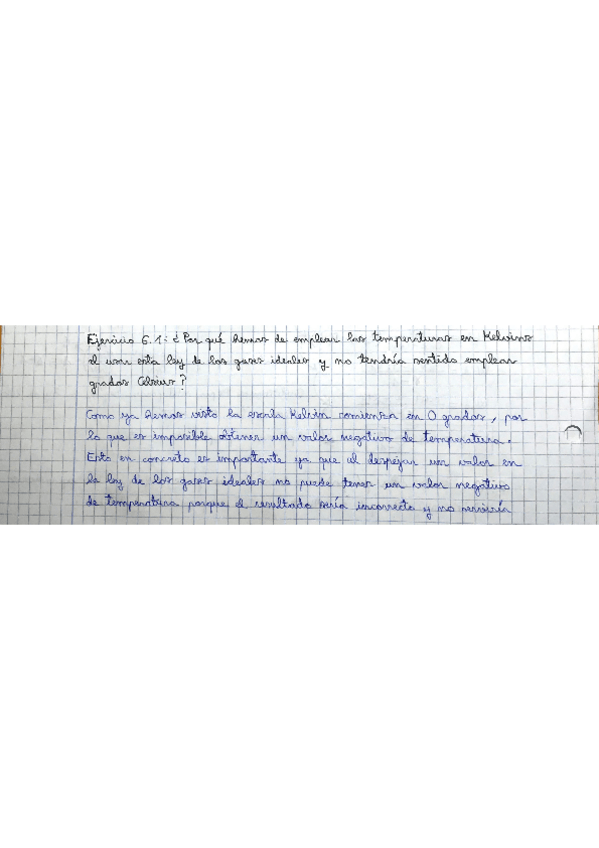 Ejercicio 6.1: ¿Por qué hemos de emplear las temperaturas en Kelvins
al usar esta ley de los gases ideales y no tendría sentido emplear
grados Celsius?
Como ya hemos visto la escala Kelvin comienza en 0 grados, por
lo que es imposible obtener un valor negativo de temperatura.
Esto en concreto es importante ya que al despejar un valor en
la ley de los gases ideales no puede tener un valor negativo
de temperatura porque el resultado sería incorrecto y no serviría